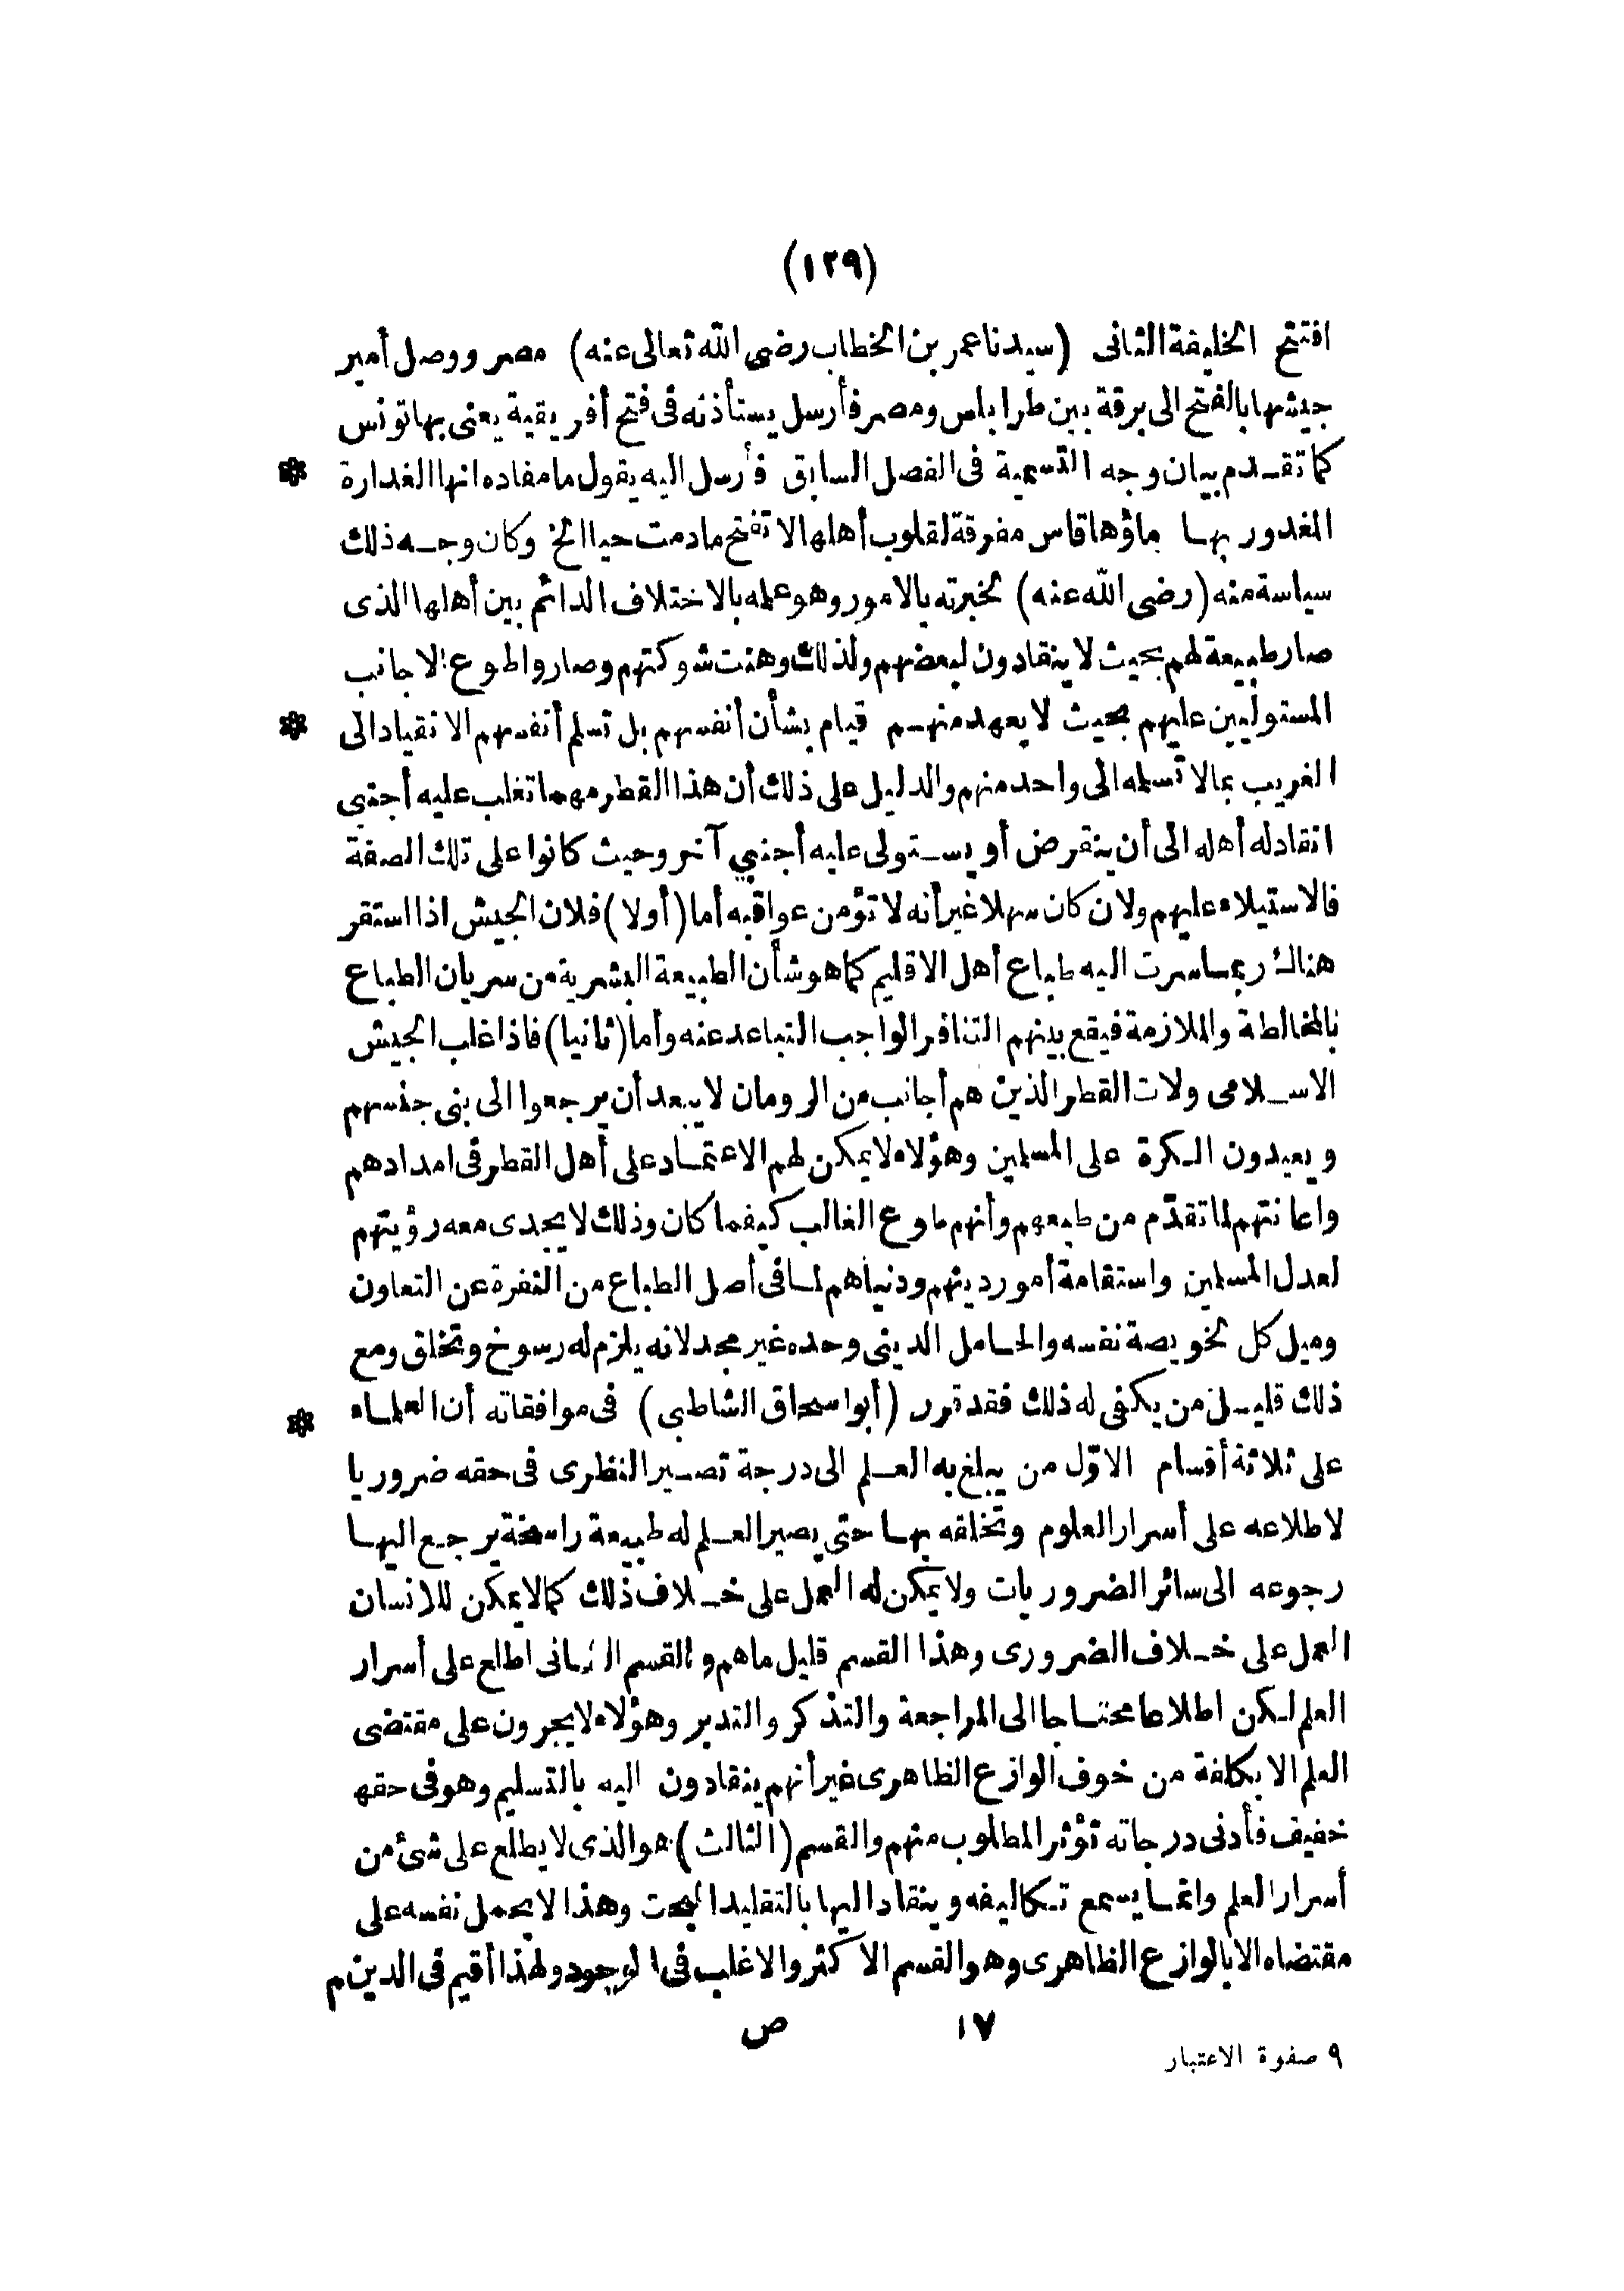 (١٢٩)
افتتح الخليفة الثانى (سيدنا عمر بن الخطاب رضى الله تعالى عنه) مصر ووصل أمير
جيشها بالفتح الى برقة بين طرابلس ومصر فأرسل يستأذنه فى فتح أفريقية يعنى بها تونس
كما تقدم بيان وجه التسمية فى الفصل السابق فأرسل اليه يقول ما مفاده انها الغدارة *
المغدور بها ماؤها قاس مفرقة لقلوب أهلها لا تفتح ما دمت حيا الخ وكان وجه ذلك
سياسة منه (رضى الله عنه) لخبرته بالامور وهو علمه بالاختلاف الدائم بين أهلها الذى
صار طبيعة لهم بحيث لا ينقادون لبعضهم ولذلك وهنت شوكتهم وصاروا طوع الاجانب
المستوليين عليهم بحيث لا يعهد منهم قيام بشأن أنفسهم بل تسلم أنفسهم الانقياد الى *
الغريب بما لا تسلمه الى واحد منهم والدليل على ذلك أن هذا القطر مهما تغلب عليه أجنبى
انقاد له أهله الى أن ينقرض أو يستولى عليه أجنبي آخر وحيث كانوا على تلك الصفة
فالاستيلاء عليهم ولان كان سهلا غير أنه لا تؤمن عواقبه أما (أولا) فلان الجيش اذا استقر
هناك ربما سرت اليه طباع أهل الاقليم كما هو شأن الطبيعة البشرية من سريان الطباع
بالمخالطة والملازمة فيقع بينهم التنافر الواجب التباعد عنه وأما (ثانيا) فاذا غلب الجيش
الاسلامى ولات القطر الذين هم أجانب من الرومان لا يبعد أن يرجعوا الى بنى جنسهم
ويعيدون الكرة على المسلمين وهؤلاء لا يمكن لهم الاعتماد على أهل القطر فى امدادهم
واعانتهم لما تقدّم من طبعهم وأنهم طوع الغالب كيفما كان وذلك لا يجدى معه رؤيتهم
لعدل المسلمين واستقامة أمور دينهم ودنياهم لما فى أصل الطباع من النفرة عن التعاون
وميل كل لخويصة نفسه والحامل الدينى وحده غير مجد لانه يلزم له رسوخ وتخلق ومع
ذلك قليل من يكفى له ذلك فقد قرر (أبو اسحاق الشاطبى) فى موافقاته أن العلماء *
على ثلاثة أقسام الاوّل من يبلغ به العلم الى درجة تصير النظرى فى حقه ضروريا
لاطلاعه على أسرار العلوم وتخلقه بها حتى يصير العلم له طبيعة راسخة يرجع اليها
رجوعه الى سائر الضروريات ولا يمكن له العمل على خلاف ذلك كما لا يمكن للانسان
العمل على خلاف الضرورى وهذا القسم قليل ما هم والقسم الثانى اطلع على أسرار
العلم لكن اطلاعا محتاجا الى المراجعة والتذكر والتدبر وهؤلاء لا يجرون على مقتضى
العلم الا بكلفة من خوف الوازع الظاهرى غير أنهم ينقادون اليه بالتسليم وهو فى حقه
خفيف فأدنى درجاته تؤثر المطلوب منهم والقسم (الثالث) هو الذى لا يطلع على شئ من
أسرار العلم وانما يسمع تكاليفه وينقاد اليها بالتقليد البحت وهذا لا يحمل نفسه على
مقتضاه الا بالوازع الظاهرى وهو القسم الاكثر والاغلب فى الوجود ولهذا أقيم فى الدين م
١٧ ص
٩ صفوة الاعتبار